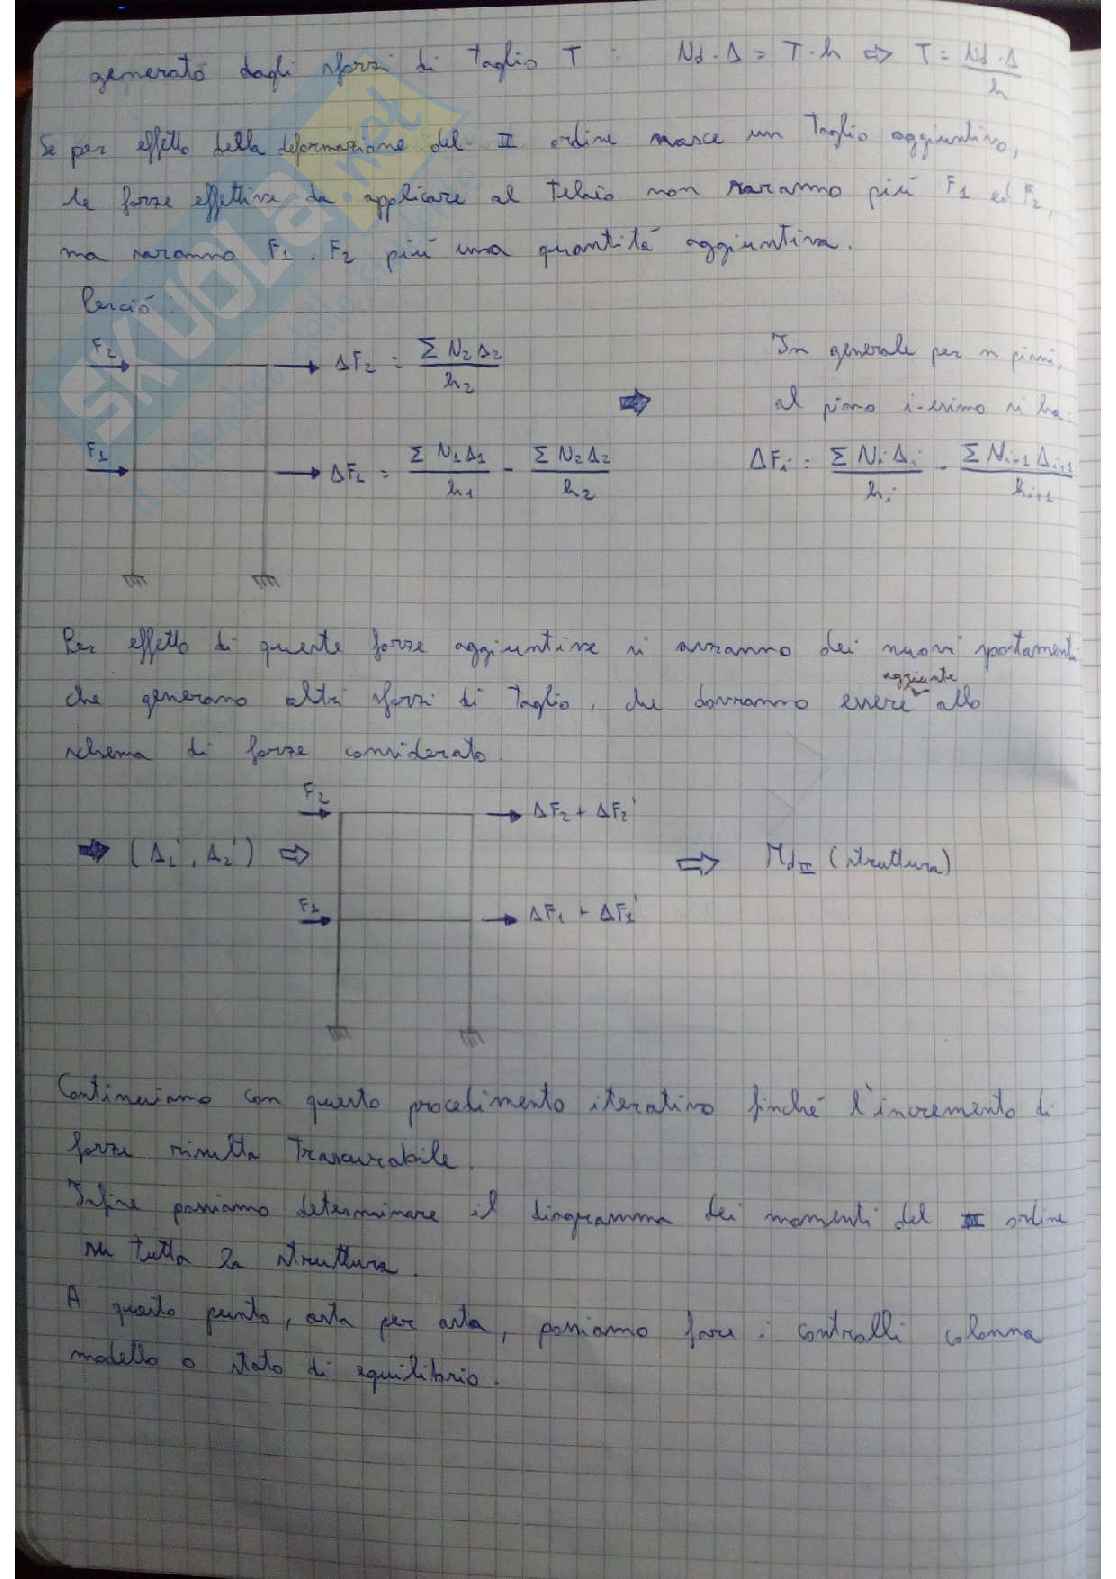 generato dagli sforzi di Taglio T : Nd · Δ = T · h ⇨ T = Nd · Δ / h
Se per effetto della deformazione del II ordine nasce un Taglio aggiuntivo,
le forze effettive da applicare al Telaio non saranno più F1 ed F2,
ma saranno F1, F2 più una quantità aggiuntiva.
Perciò.
F2 ΔF2 = Σ N2 Δ2 / h2
In generale per n piani,
al piano i-esimo si ha:
F1 ΔF1 = Σ N1 Δ1 / h1 - Σ N2 Δ2 / h2
ΔFi = Σ Ni Δi / hi - Σ Ni+1 Δi+1 / hi+1
Per effetto di queste forze aggiuntive si avranno dei nuovi spostamenti
che generano altri sforzi di Taglio, che dovranno essere aggiunte allo
schema di forze considerato.
F2 ΔF2 + ΔF2'
⇨ (Δ1', Δ2') ⇨ ⇨ MdII (struttura)
F1 ΔF1 + ΔF1'
Continuiamo con questo procedimento iterativo finché l'incremento di
forze risulta Trascurabile.
Infine possiamo determinare il diagramma dei momenti del II ordine
su tutta la struttura.
A questo punto, asta per asta, possiamo fare i controlli colonna
modello o stato di equilibrio.
SKUOLA.net